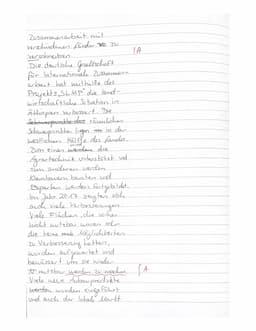 Zusammenarbeit mit
verschiedenen Länder zu
verschreiben. 1A
Die deutsche Gesellschaft
für Internationale Zusammen-
arbeit hat mithilfe des
Projekts "SLMP" die land-
wirtschaftliche Situation in
Äthiopien verbessert. Die
räumlichen
Schwerpunkte liegen in der
westlichen Hälfte des Landes.
Zum einen die
Agrartechnik unterstützt und
zum anderen werden
Kleinbauern beraten und
Experten werden fortgebildet.
Im Jahr 2017 zeigten sich
auch viele Verbesserungen.
Viele Flächen, die schwer
nutzbar waren oder
die keine Möglichkeiten
zu Verbesserung hatten,
wurden aufgewertet und
bewässert um sie wieder
nutzbar werden zu machen. A
Viele neue Anbauprodukte
werden wurden eingeführt
und auch der lokale Markt